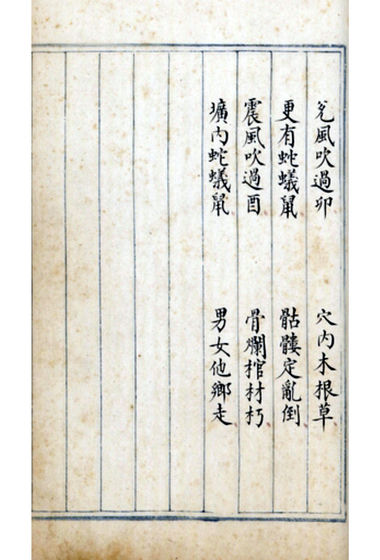 兌風吹過卯 穴內木根草
更有蛇蟻鼠 骷髏定亂倒
震風吹過酉 骨爛棺材朽
壙內蛇蟻鼠 男女他鄉走